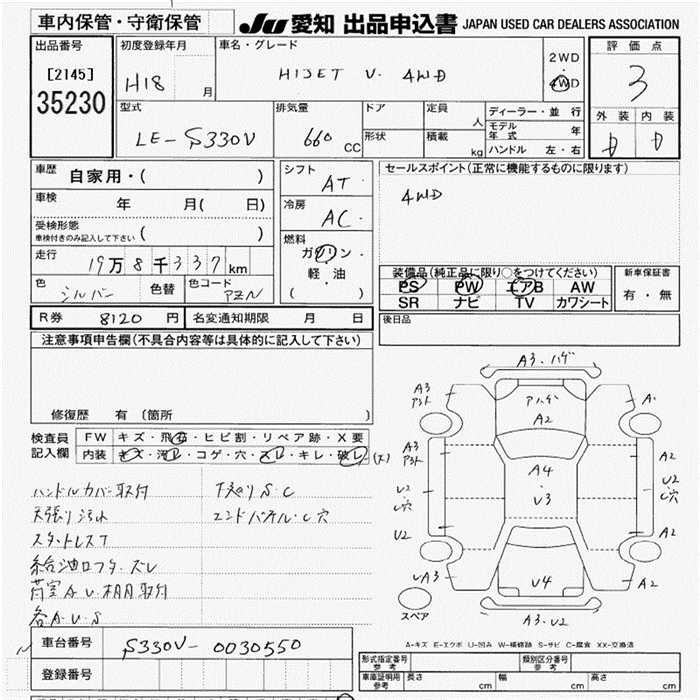 車内保管・守衛保管
JU 愛知 出品申込書 JAPAN USED CAR DEALERS ASSOCIATION
出品番号
[2145]
35230
初度登録年月
H18 月
車名・グレード
HIJET V. 4WD
2WD
・
4WD
評価点
3
外装 内装
型式
LE-S330V
排気量
660 CC
ドア
形状
定員
人
積載
kg
ディーラー・並行
モデル年式 年
ハンドル 左・右
車歴 自家用・( )
車検 年 月( 日)
受検形態
車検付きのみ記入して下さい ( )
走行
19万8千337km
色 シルバー
色替
色コード
シフト
AT
冷房
AC
燃料
ガソリン・
軽油
( )
セールスポイント(正常に機能するものに限ります)
4WD
装備品(純正品に限り○をつけてください)
PS PW エアB AW
SR ナビ TV カワシート
新車保証書
有・無
R券 8120 円
名変通知期限 月 日
後日品
注意事項申告欄(不具合内容等は具体的に記入して下さい)
修復歴 有 〔箇所 〕
検査員
記入欄
FW キズ・飛石・ヒビ割・リペア跡・X要
内装 キズ・汚レ・コゲ・穴・スレ・キレ・破レ
ハンドルカバー取付
天張り汚れ
スタットレスT
給油口フタ・ズレ
下廻りS.C
エンドパネル・C穴
各A.U.S
A3・ハゲ
A3
アト
アハゲ
A2
A3
アト
A4
・
V3
U2
C穴
U2
A1
A2
U2
C穴
A2
A2
UA3
U4
A3・U2
スペア
A-キズ E-エクボ U-凹み W-補修跡 S-サビ C-腐食 XX-交換済
車台番号
S330V-0030550
登録番号
形式指定番号
参考
類別区分番号
参考
車庫証明用
参考
長さ cm
幅 cm
高さ cm